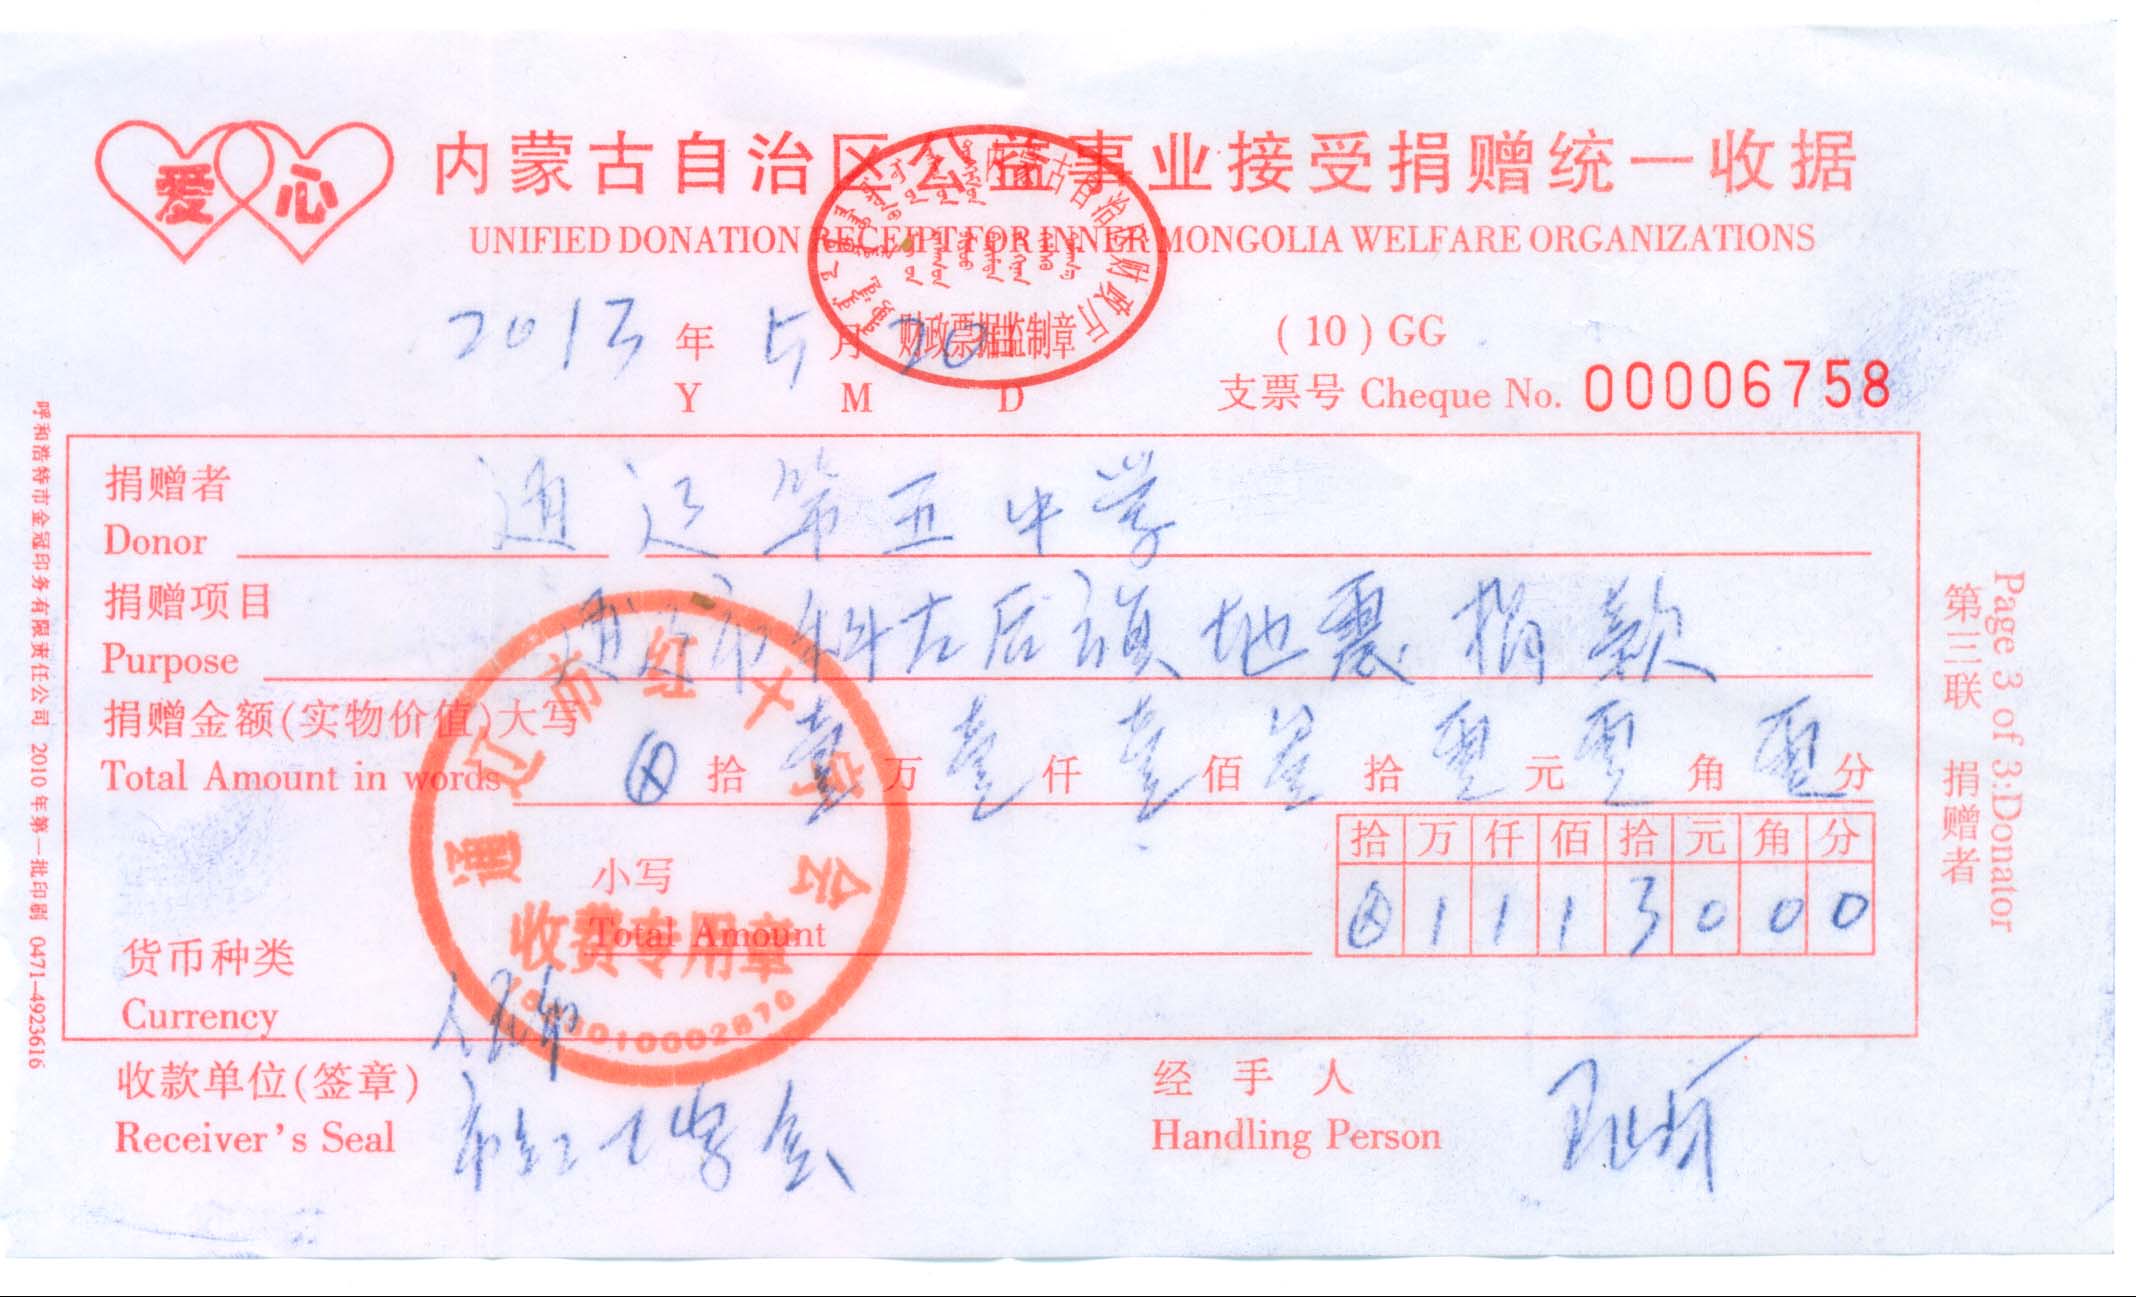 爱心
内蒙古自治区公益事业接受捐赠统一收据
UNIFIED DONATION RECEIPT FOR INNER MONGOLIA WELFARE ORGANIZATIONS
内蒙古自治区财政厅
财政票据监制章
2013 年 5 月 20
Y M D
(10) GG
支票号 Cheque No. 00006758
捐赠者
Donor 通辽第五中学
捐赠项目
Purpose 通辽市科左后旗地震捐款
捐赠金额(实物价值)大写
Total Amount in words ⊗ 拾 壹 万 壹 仟 壹 佰 叁 拾 零 元 零 角 零 分
小写
Total Amount
拾 万 仟 佰 拾 元 角 分
⊗ 1 1 1 3 0 0 0
货币种类
Currency 人民币
通辽市红十字会
收费专用章
收款单位(签章)
Receiver's Seal 市红十字会
经手人
Handling Person
呼和浩特市金冠印务有限责任公司 2010年第一批印刷 0471-4923616
第三联 捐赠者
Page 3 of 3:Donator